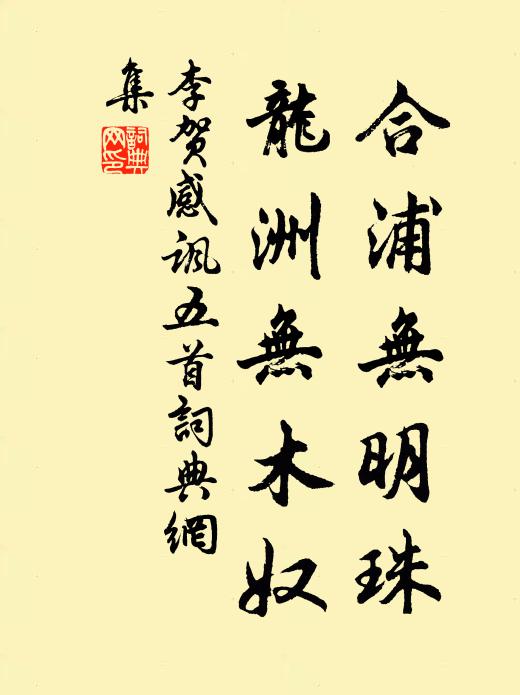 合浦無明珠
龍洲無木奴
李賀感諷五首詞典網
集
詞典
网印